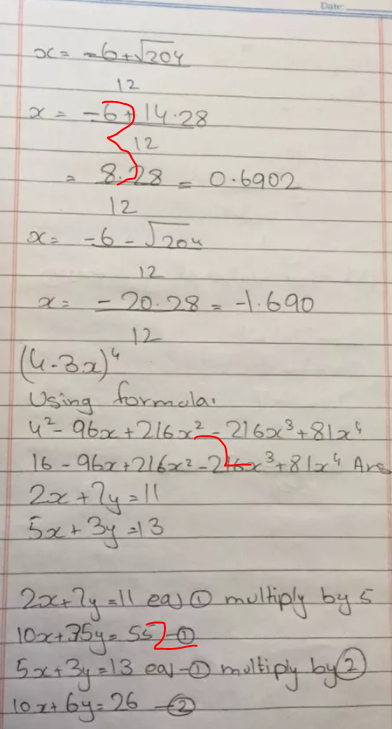 Date:
x = -6+√204
12
x = -6+14.28
12
= 8.28 = 0.6902
12
x = -6-√204
12
x = -20.28 = -1.690
12
(4-3x)⁴
Using formula.
4² - 96x + 216x² - 216x³ + 81x⁴
16 - 96x + 216x² - 216x³ + 81x⁴ Ans
2x + 7y = 11
5x + 3y = 13
2x + 7y = 11 eq ① multiply by 5
10x + 35y = 55 - ①
5x + 3y = 13 eq - ① multiply by ②
10x + 6y = 26 - ②